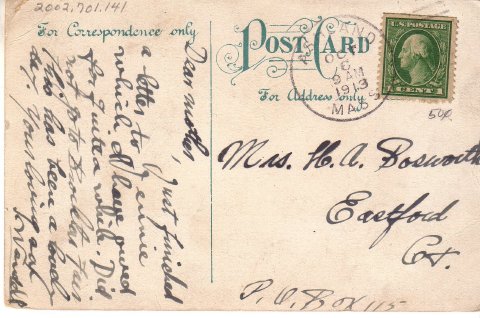 2002.701.141
For Correspondence only
POST CARD
For Address only
OCT 6
AM
1913
MASS
U.S. POSTAGE
1 CENT 1
50¢
Dear mother,
Just finished
a letter to Jennie
which I have owed
for quite a while. Did
not go to Brockton fair
this has been a lovely
day. your loving son
Mrs. H. A. Bosworth
Eastford
Ct.
P.O. Box 115